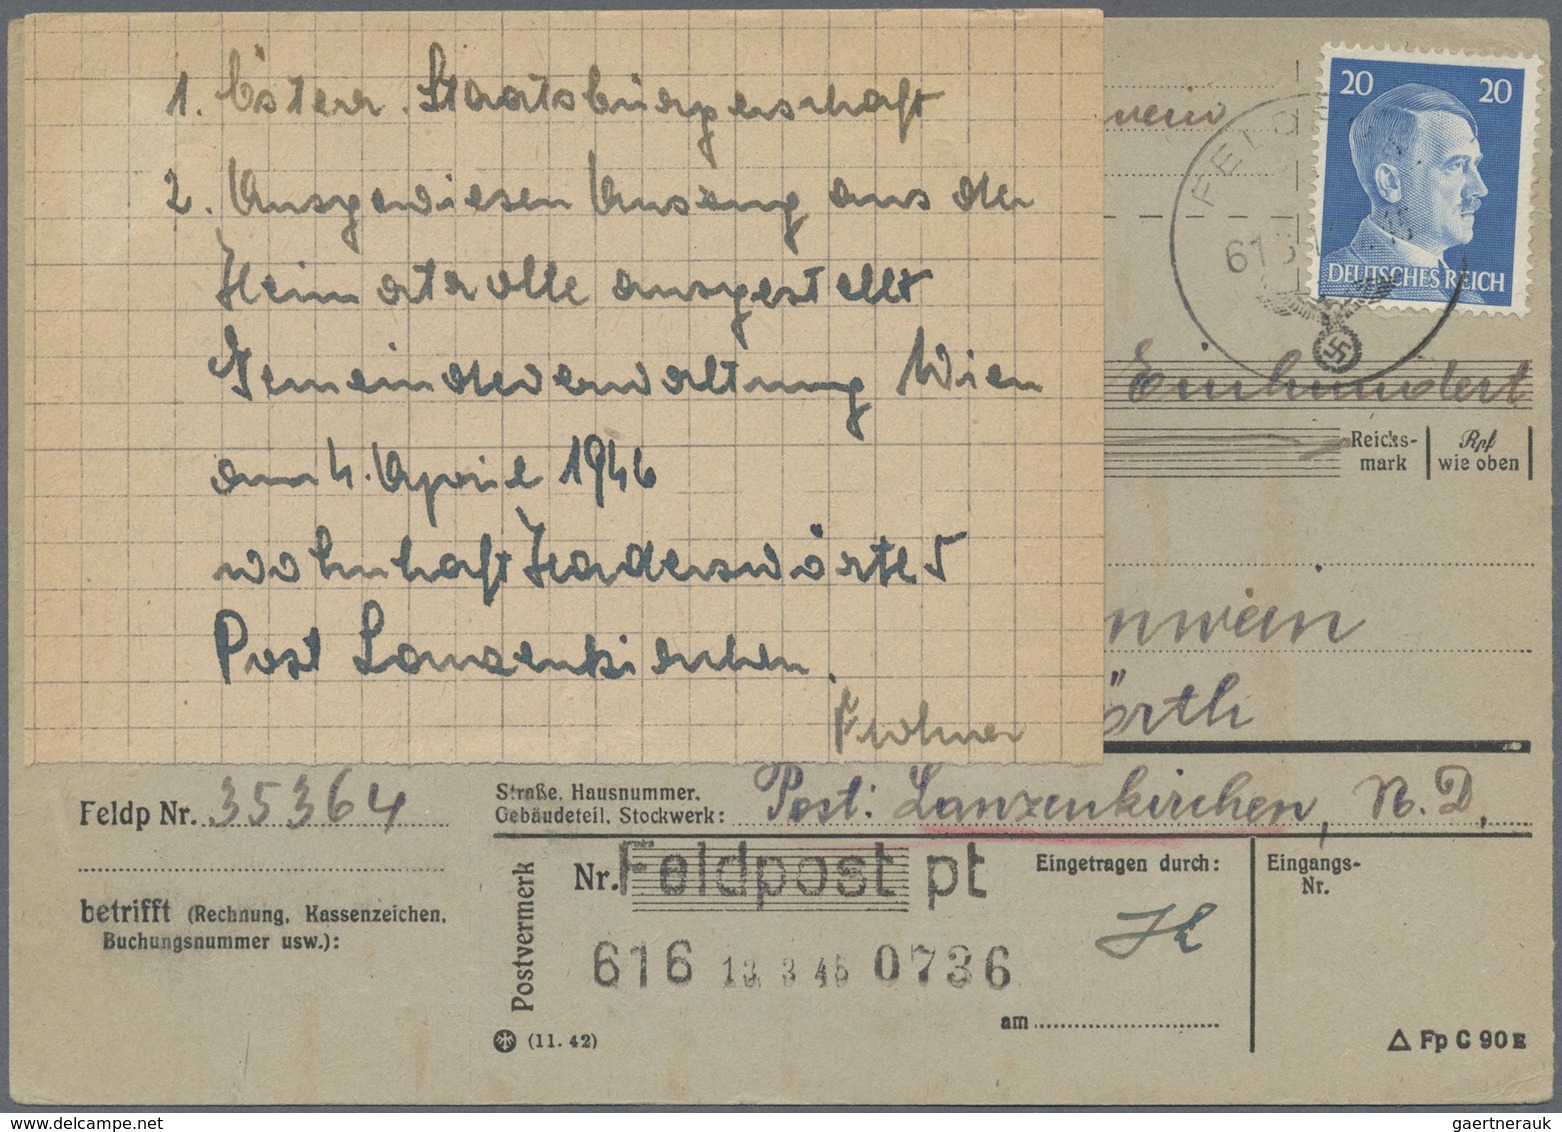 1. Österr. Staatsbürgerschaft
2. Ausgewiesen Auszug aus der
Heimatrolle ausgestellt
Gemeindeverwaltung Wien
am 4. April 1946
wohnhaft Haderswörth 5
Post Lanzenkirchen.
Frohner
20 20
DEUTSCHES REICH
FELD
616
Einhundert
Reichs-
mark
Rpf
wie oben
nwein
örth
Feldp Nr. 35364
Straße, Hausnummer,
Gebäudeteil, Stockwerk: Post: Lanzenkirchen, N.D.
betrifft (Rechnung, Kassenzeichen,
Buchungsnummer usw.):
Postvermerk
Nr. Feldpost pt
616 13. 3 45 0736
Eingetragen durch:
am
Eingangs-
Nr.
(11. 42)
Fp C 90 E
gaertnerauk@delcampe.net